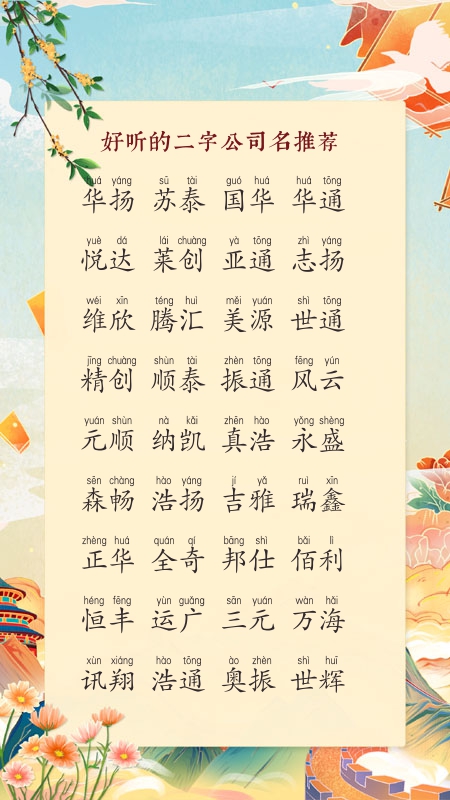 好听的二字公司名推荐
huá yáng sū tài guó huá huá tōng
华扬 苏泰 国华 华通
yuè dá lái chuàng yà tōng zhì yáng
悦达 莱创 亚通 志扬
wéi xīn téng huì měi yuán shì tōng
维欣 腾汇 美源 世通
jīng chuàng shùn tài zhèn tōng fēng yún
精创 顺泰 振通 风云
yuán shùn nà kǎi zhēn hào yǒng shèng
元顺 纳凯 真浩 永盛
sēn chàng hào yáng jí yǎ ruì xīn
森畅 浩扬 吉雅 瑞鑫
zhèng huá quán qí bāng shì bǎi lì
正华 全奇 邦仕 佰利
héng fēng yùn guǎng sān yuán wàn hǎi
恒丰 运广 三元 万海
xùn xiáng hào tōng ào zhèn shì huī
讯翔 浩通 奥振 世辉